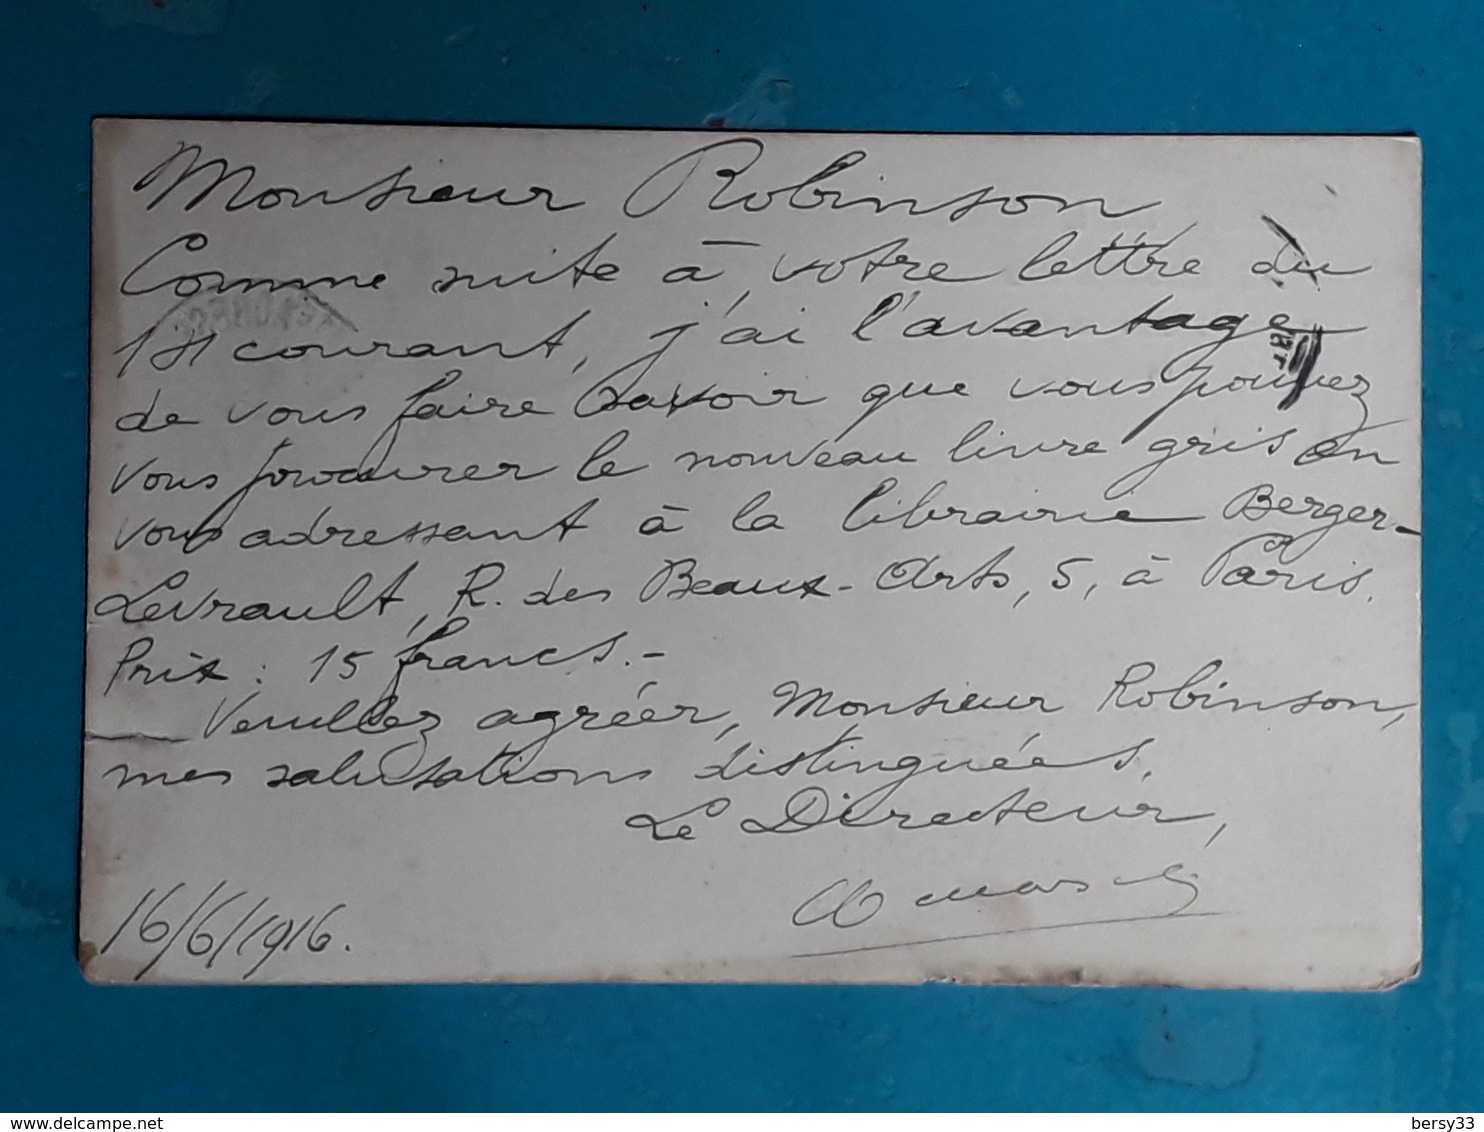 Monsieur Robinson
Comme suite à votre lettre du
courant, j'ai l'avantage
de vous faire savoir que vous pouvez
vous procurer le nouveau livre gris en
vous adressant à la librairie Berger-
Levrault, R. des Beaux-Arts, 5, à Paris.
Prix : 15 francs.-
Veuillez agréer, Monsieur Robinson,
mes salutations distinguées.
Le Directeur,
16/6/1916.
delcampe.net
bersy33